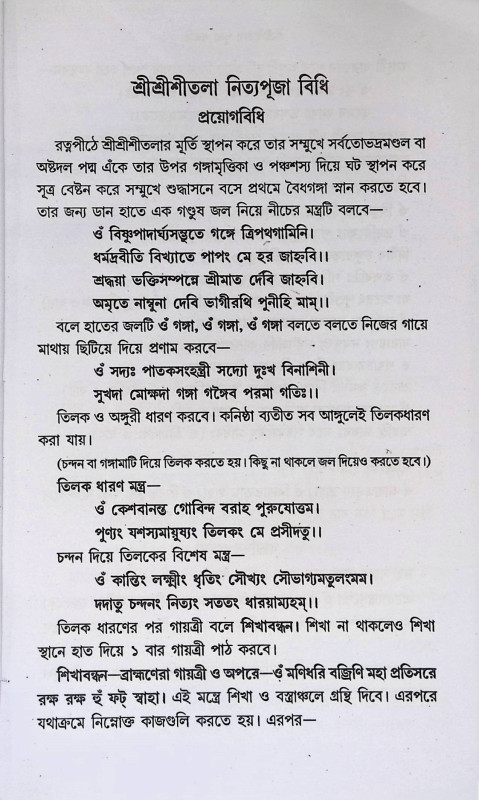 শ্রীশ্রীশীতলা নিত্যপূজা বিধি
প্রয়োগবিধি
রত্নপীঠে শ্রীশ্রীশীতলার মূর্তি স্থাপন করে তার সম্মুখে সর্বতোভদ্রমণ্ডল বা
অষ্টদল পদ্ম এঁকে তার উপর গঙ্গামৃত্তিকা ও পঞ্চশস্য দিয়ে ঘট স্থাপন করে
সূত্র বেষ্টন করে সম্মুখে শুদ্ধাসনে বসে প্রথমে বৈধগঙ্গা স্নান করতে হবে।
তার জন্য ডান হাতে এক গণ্ডূষ জল নিয়ে নীচের মন্ত্রটি বলবে—
ওঁ বিষ্ণুপাদার্ঘ্যসম্ভূতে গঙ্গে ত্রিপথগামিনি।
ধর্মদ্রবীতি বিখ্যাতে পাপং মে হর জাহ্নবি।।
শ্রদ্ধয়া ভক্তিসম্পন্নে শ্রীমাত র্দেবি জাহ্নবি।
অমৃতে নাম্বুনা দেবি ভাগীরথি পুনীহি মাম্।।
বলে হাতের জলটি ওঁ গঙ্গা, ওঁ গঙ্গা, ওঁ গঙ্গা বলতে বলতে নিজের গায়ে
মাথায় ছিটিয়ে দিয়ে প্রণাম করবে—
ওঁ সদ্যঃ পাতকসংহন্ত্রী সদ্যো দুঃখ বিনাশিনী।
সুখদা মোক্ষদা গঙ্গা গঙ্গৈব পরমা গতিঃ।।
তিলক ও অঙ্গুরী ধারণ করবে। কনিষ্ঠা ব্যতীত সব আঙ্গুলেই তিলকধারণ
করা যায়।
(চন্দন বা গঙ্গামাটি দিয়ে তিলক করতে হয়। কিছু না থাকলে জল দিয়েও করতে হবে।)
তিলক ধারণ মন্ত্র—
ওঁ কেশবানন্ত গোবিন্দ বরাহ পুরুষোত্তম।
পুণ্যং যশস্যমায়ুষ্যং তিলকং মে প্রসীদতু।।
চন্দন দিয়ে তিলকের বিশেষ মন্ত্র—
ওঁ কান্তিং লক্ষ্মীং ধৃতিং সৌখ্যং সৌভাগ্যমতুলংমম।
দদাতু চন্দনং নিত্যং সততং ধারয়াম্যহম্।।
তিলক ধারণের পর গায়ত্রী বলে শিখাবন্ধন। শিখা না থাকলেও শিখা
স্থানে হাত দিয়ে ১ বার গায়ত্রী পাঠ করবে।
শিখাবন্ধন—ব্রাহ্মণেরা গায়ত্রী ও অপরে—ওঁ মণিধরি বজ্রিণি মহা প্রতিসরে
রক্ষ রক্ষ হুঁ ফট্ স্বাহা। এই মন্ত্রে শিখা ও বস্ত্রাঞ্চলে গ্রন্থি দিবে। এরপরে
যথাক্রমে নিম্নোক্ত কাজগুলি করতে হয়। এরপর—